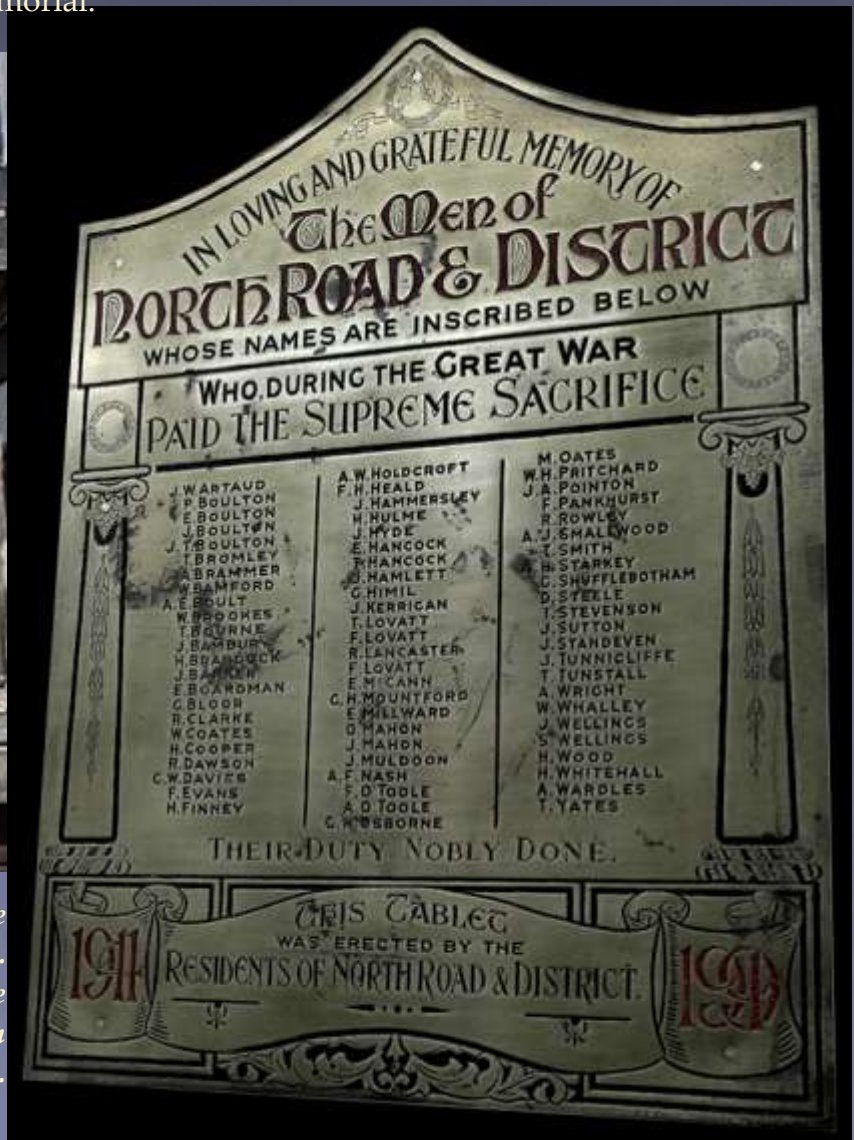 morial.
IN LOVING AND GRATEFUL MEMORY OF
The Men of
NORTH ROAD & DISTRICT
WHOSE NAMES ARE INSCRIBED BELOW
WHO, DURING THE GREAT WAR
PAID THE SUPREME SACRIFICE
J. WARTAUD
P. BOULTON
E. BOULTON
J. BOULTON
J. T. BOULTON
T. BROMLEY
A. BRAMMER
W. BAMFORD
A. E. BOULT
W. BROOKES
T. BOURNE
J. BAMBURY
H. BRADDOCK
J. BARKER
E. BOARDMAN
G. BLOOR
R. CLARKE
W. COATES
H. COOPER
R. DAWSON
C. W. DAVIES
F. EVANS
H. FINNEY
A. W. HOLDCROFT
F. H. HEALD
J. HAMMERSLEY
H. HULME
J. HYDE
E. HANCOCK
T. HANCOCK
J. HAMLETT
G. HIMIL
J. KERRIGAN
T. LOVATT
F. LOVATT
R. LANCASTER
F. LOVATT
E. MCCANN
G. H. MOUNTFORD
E. MILLWARD
O. MAHON
J. MAHON
J. MULDOON
A. F. NASH
F. O'TOOLE
A. O'TOOLE
G. H. OSBORNE
M. OATES
W. H. PRITCHARD
J. A. POINTON
F. PANKHURST
R. ROWLEY
A. J. SMALLWOOD
T. SMITH
A. H. STARKEY
C. SHUFFLEBOTHAM
D. STEELE
T. STEVENSON
J. SUTTON
J. STANDEVEN
J. TUNNICLIFFE
T. TUNSTALL
A. WRIGHT
W. WHALLEY
J. WELLINGS
S. WELLINGS
H. WOOD
H. WHITEHALL
A. WARDLES
T. YATES
THEIR DUTY NOBLY DONE.
THIS TABLET
WAS ERECTED BY THE
RESIDENTS OF NORTH ROAD & DISTRICT.
1914
1919